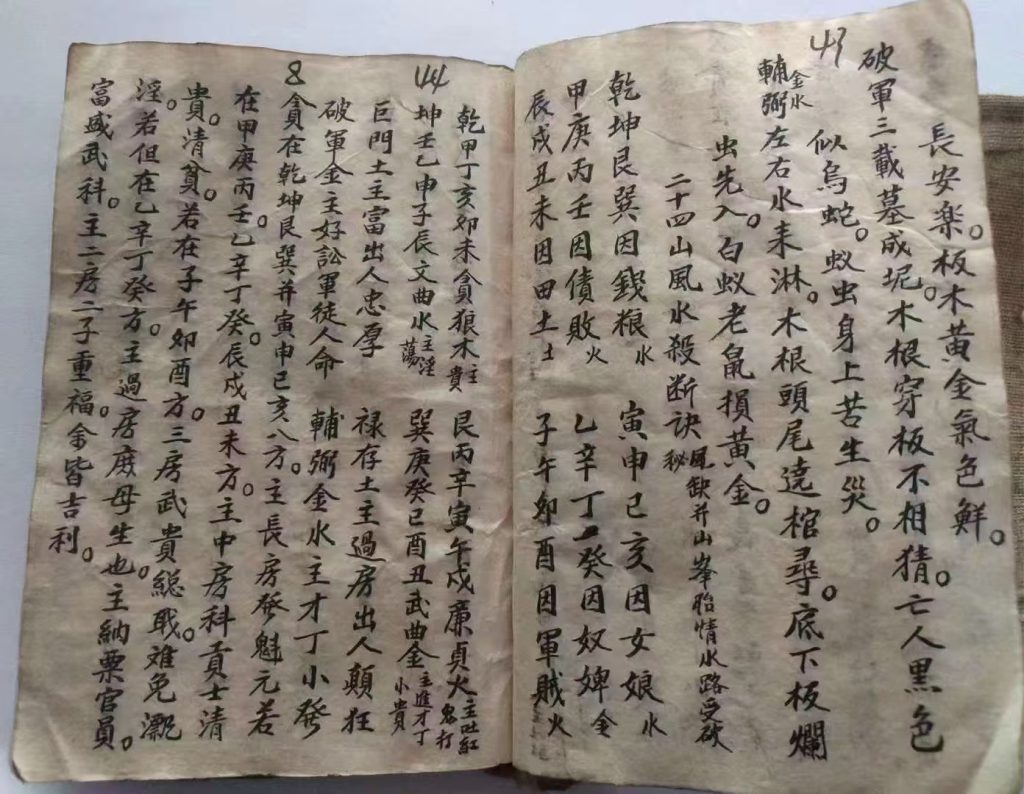 43
長安樂。板木黃金氣色鮮。
破軍三載墓成坭。木根穿板不相猜。亡人黑色
似烏蛇。蚁虫身上苦生災。
輔弼金水左右水来淋。木根頭尾遶棺尋。底下板爛
虫先入。白蚁老鼠損黃金。
二十四山風水殺断訣秘風缺并山峯胎情水路受破
乾坤艮巽因錢粮水 寅申巳亥因女娘水
甲庚丙壬因債敗火 乙辛丁癸因奴婢金
辰戌丑未因田土土 子午卯酉因軍賊火
44
乾甲丁亥卯未貪狼木主貴 艮丙辛寅午戌廉貞火主吐紅鬼打
坤壬乙申子辰文曲水主淫蕩 巽庚癸巳酉丑武曲金主進才丁小貴
巨門土主富出人忠厚 禄存土主過房出人顛狂
破軍金主好訟軍徒人命 輔弼金水主才丁小發
8
貪在乾坤艮巽并寅申巳亥八方。主長房發魁元若
在甲庚丙壬。乙辛丁癸。辰戌丑未方。主中房科貢士清
貴。清貧。若在子午卯酉方。三房武貴総戎。难免飄
淫。若但在乙辛丁癸方。主過房庶母生也。主納粟官員。
富盛武科。主二房二子重福。舍皆吉利。